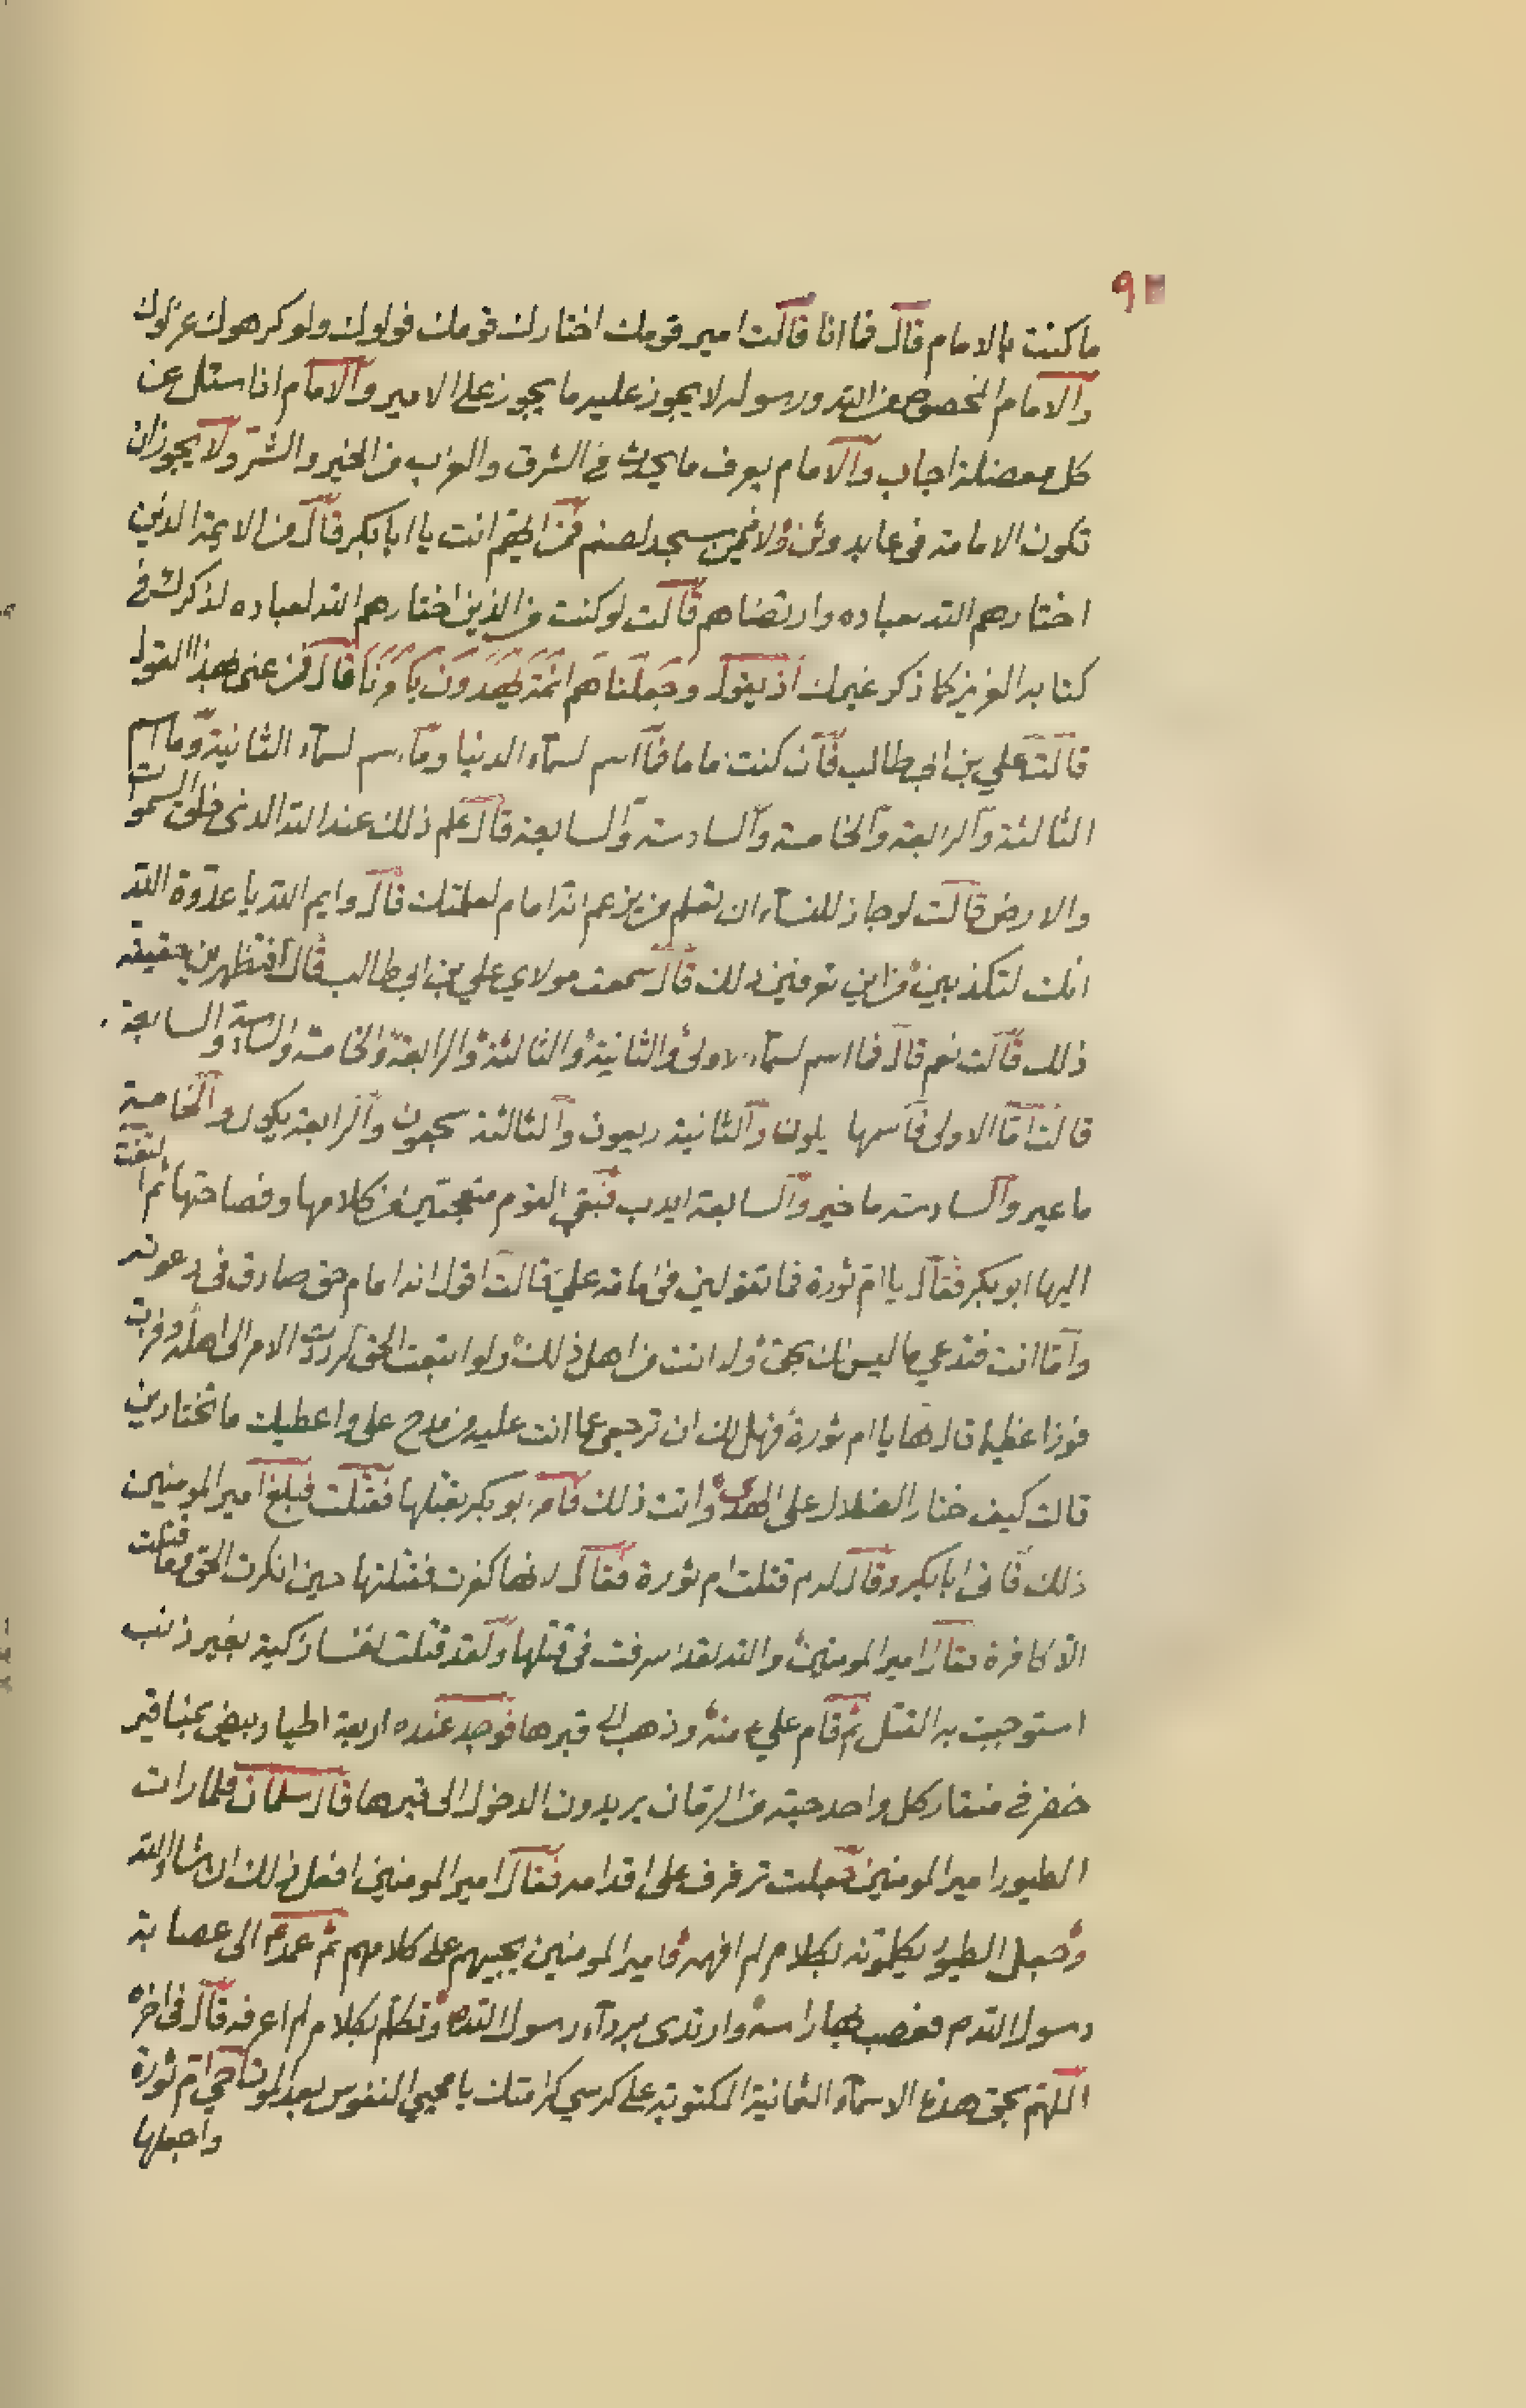 ٩
ما كنت بالامام قال فما انا قالت امير قومك اختارك قومك فولوك ولو كرهوك عزلوك
والامام المخصوص من الله ورسوله لا يجوز عليه ما يجوز على الامير والامام اذا سئل عن
كل معضلة اجاب والامام يعرف ما يحدث في الشرق والغرب من الخير والشر ولا يجوز ان
تكون الامامة في عابد وثن ولا فيمن سجد لصنم فمن ايهم انت يا ابا بكر قال من الايمة الذين
اختارهم الله لعباده وارتضاهم قالت لو كنت من الذين اختارهم الله لعباده لذكرك في
كتابه العزيز كما ذكر غيرك اذ يقول وجعلناهم ائمة يهدون بامرنا قال فمن عنى بهذا القول
قالت علي بن ابي طالب فان كنت اماما فما اسم لسماء الدنيا وما اسم لسماء الثانية وما اسم
الثالثة والرابعة والخامسة والسادسة والسابعة قال علم ذلك عند الله الذى خلق السموات
والارض قالت لو جاز للنساء ان تعلم من يزعم انه امام لعلمتك قال وايم الله يا عدوة الله
انك لتكذبين من اين تعرفين ذلك قال سمعت مولاي علي بن ابي طالب قال افتظهرين حقيقة
ذلك قالت نعم قال فما اسم لسماء الاولى والثانية والثالثة والرابعة والخامسة والسادسة والسابعة
قالت اما الاولى فاسمها يلون والثانية ربعون والثالثة سحمون والرابعة يكول والخامسة
ماعير والسادسة ماخير والسابعة ايدب فبقي القوم متعجبين من كلامها وفصاحتها ثم التفت
اليها ابو بكر فقال يا ام ثورة فما تقولين في امامة علي قالت اقول انه امام حق صادق في دعوته
واما انت فتدعي ما ليس لك بحق ولا انت من اهل ذلك ولو اتبعت الحق لرددت الامر الى اهله وفزت
فوزا عظيما قال لها يا ام ثورة فهل لك ان ترجعي عما انت عليه من مدح على واعطيك ما تختارين
قالت كيف ختار الضلال على الهدى وانت ذلك فامر ابو بكر بقتلها فقتلت فبلغ امير المومنين
ذلك فاتى ابا بكر وقال له لم قتلت ام ثورة فقال لانها كفرت فقتلتها حين انكرت الحق وما قتلت
الا كافرة فقال امير المومنين والله لقد اسرفت في قتلها ولقد قتلت نفسا زكية بغير ذنب
استوجبت به القتل ثم قام علي منه وذهب الى قبرها فوجد عنده اربعة اطيار بيض بمناقير
خضر في منقار كل واحد حبة من الرمان يريدون الدخول الى قبرها قال سلمان فلما رات
الطيور امير المومنين جعلت ترفرف على اقدامه فقال امير المومنين افعل ذلك ان شاء الله
وجعل الطيور يكلمونه بكلام لم افهمه فامير المومنين يجيبهم على كلامهم ثم عمد الى عصابة
رسول الله م فعصب بها راسه وارتدى برداء رسول الله وتكلم بكلام لم اعرفه قال في اخره
اللهم بحق هذه الاسماء الثمانية المكتوبة على كرسي كرامتك يا محيي النفوس بعد الموت احي ام ثورة
واجعلها